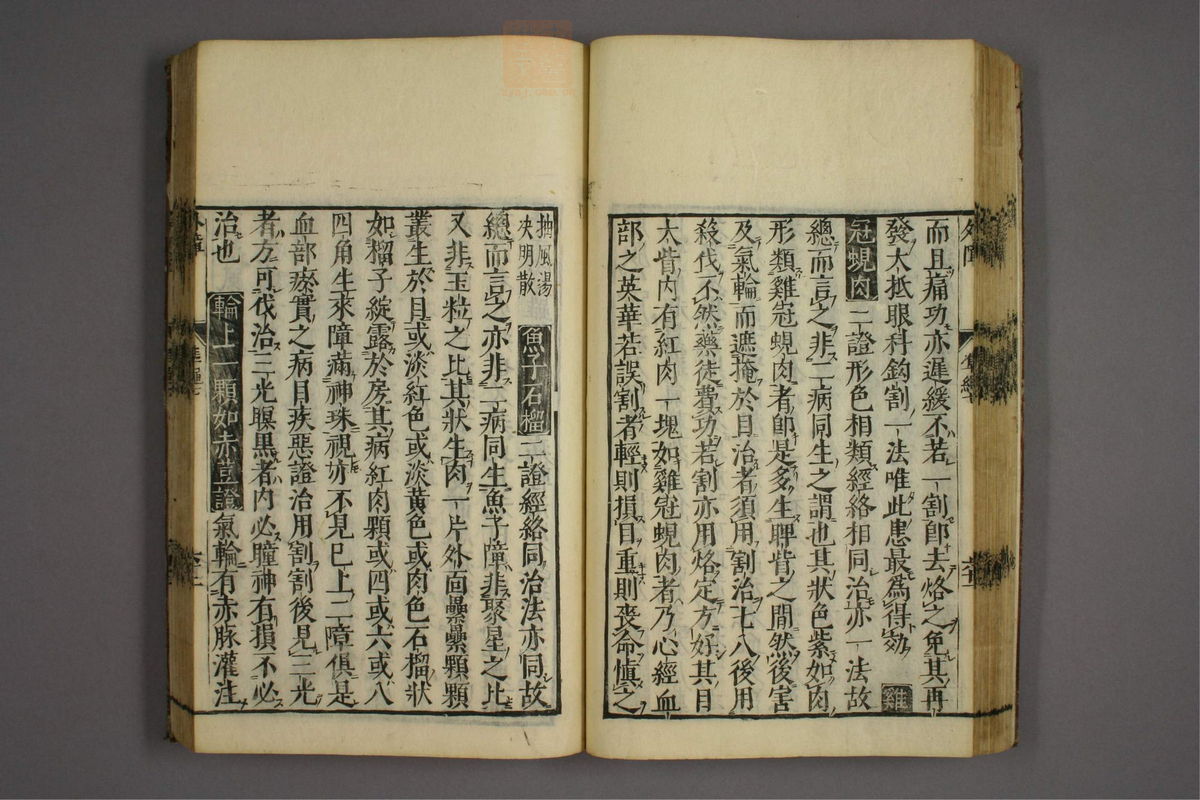 而且痛功亦遲緩不若一割即去烙之免其再
發大抵眼科鈎割一法唯此患最為得効 雞
冠蜆肉 二證形色相類經絡相同治亦一法故
總而言之非二病同生之謂也其狀色紫如肉
形類雞冠蜆肉者卽是多生睥眥之間然後害
及氣輪而遮掩於目治者須用割治七八後用
殺伐不然藥徒費功若割亦用烙定方好其目
大眥内有紅肉一塊如雞冠蜆肉者乃心經血
部之英華若誤割者輕則損目重則喪命慎之
抽風湯
決明散
魚子石榴 二證經絡同治法亦同故
總而言之亦非二病同生魚子障非聚星之比
又非玉粒之比其狀生肉一片外面纍纍顆顆
叢生於目或淡紅色或淡黄色或肉色石榴狀
如榴子綻露於房其病紅肉顆或四或六或八
四角生來障滿神珠視妨不見已上二障俱是
血部瘀實之病目疾惡證治用割割後見三光
者方可伐治三光瞑黒者内必瞳神有損不必
治也 輪上一顆如赤豆證 氣輪有赤脉灌注